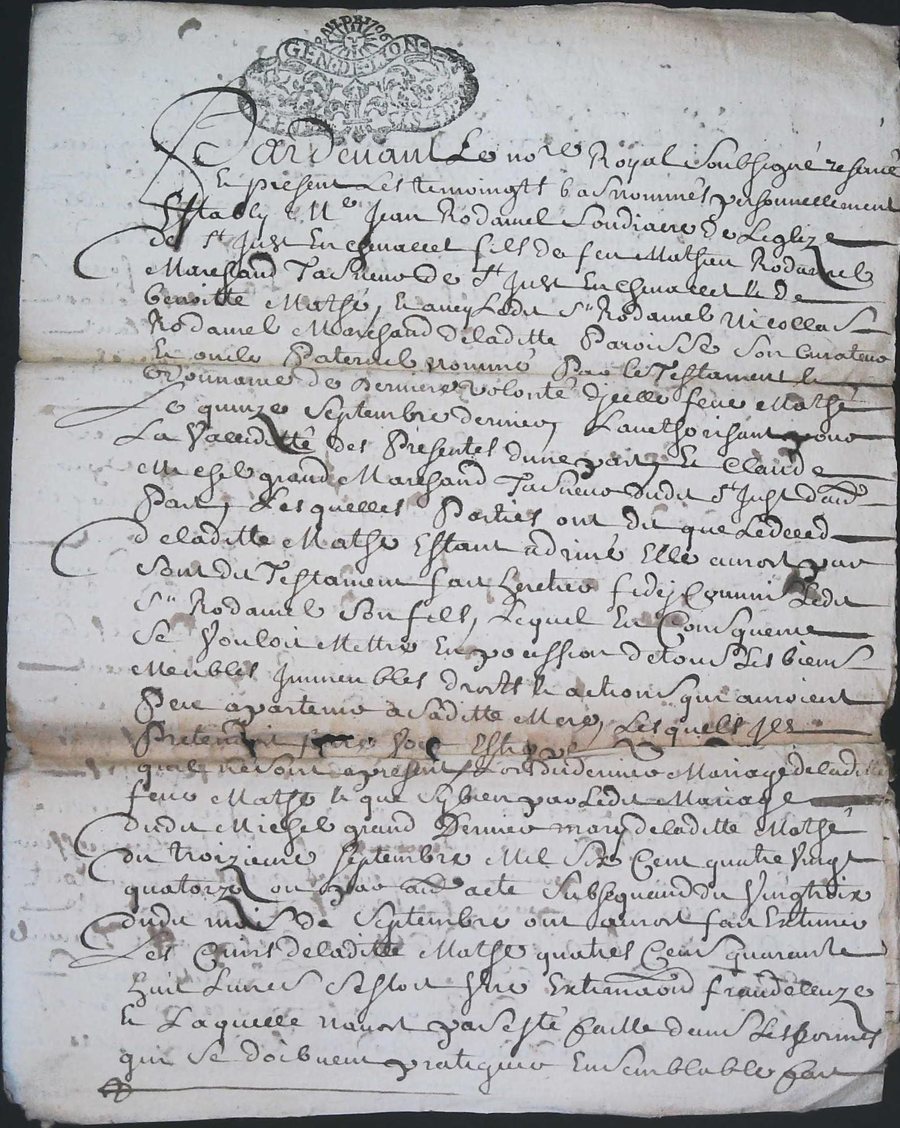 GEN · DE · LION
Pardevant Le no.re Royal Soubsigné reservé
Et present Les temoingts bas nommés personnellement
Estably M.e Jean Rodamel Soudiacre de Leglize
de S.t Just En chevallet fils de feu Mathieu Rodamel
Marchand Taneur de S.t Just En chevallet & de
benoitte Mathé, & avec Ledit S.r Rodamel Nicollas
Rodamel Marchand deladitte Paroisse Son Curateur
Et oncle Paternel nommé Par le Testament &
Ordonnance de derniere volonté dicelle feue Mathé
Le quinze Septembre dernier, Lauthorisant pour
La Vallidité des Presentes dune part, Et Claude
Michel grand Marchand Taneur dudit S.t Just dautre
Part, Lesquelles Parties ont dit que Le deced
deladitte Mathé Estant adrivé Elle auroit par
Sondit Testament fait heretier fidej Commis Ledit
S.r Rodamel Son fils, Lequel En Consequence
Se Vouloit Mettre En possession de tous Les biens
Meubles Immeubles droits & actions qui auroient
Peu apartenir a Saditte Mere, Lesquels
Pretendant
quil ne Sont apresent Lors du dernier Mariage de laditte
feue Mathé & que Sy bien par Ledit Mariage
dudit Michel grand Dernier mary deladitte Mathé
du troizieme Septembre Mil Six Cent quatre Vingt
quatorze ou par acte Subsequand du Vingtroix
dudit mois de Septembre ont auroit fait Extimer
Les Cuirs deladitte Mathé quatres Cens quarante
huit Livres Cestoit Une Extimaond fraudeleuze
& Laquelle navoit pas esté faitte dans Les formes
qui Se doibuent pratiquer En Semblable fait